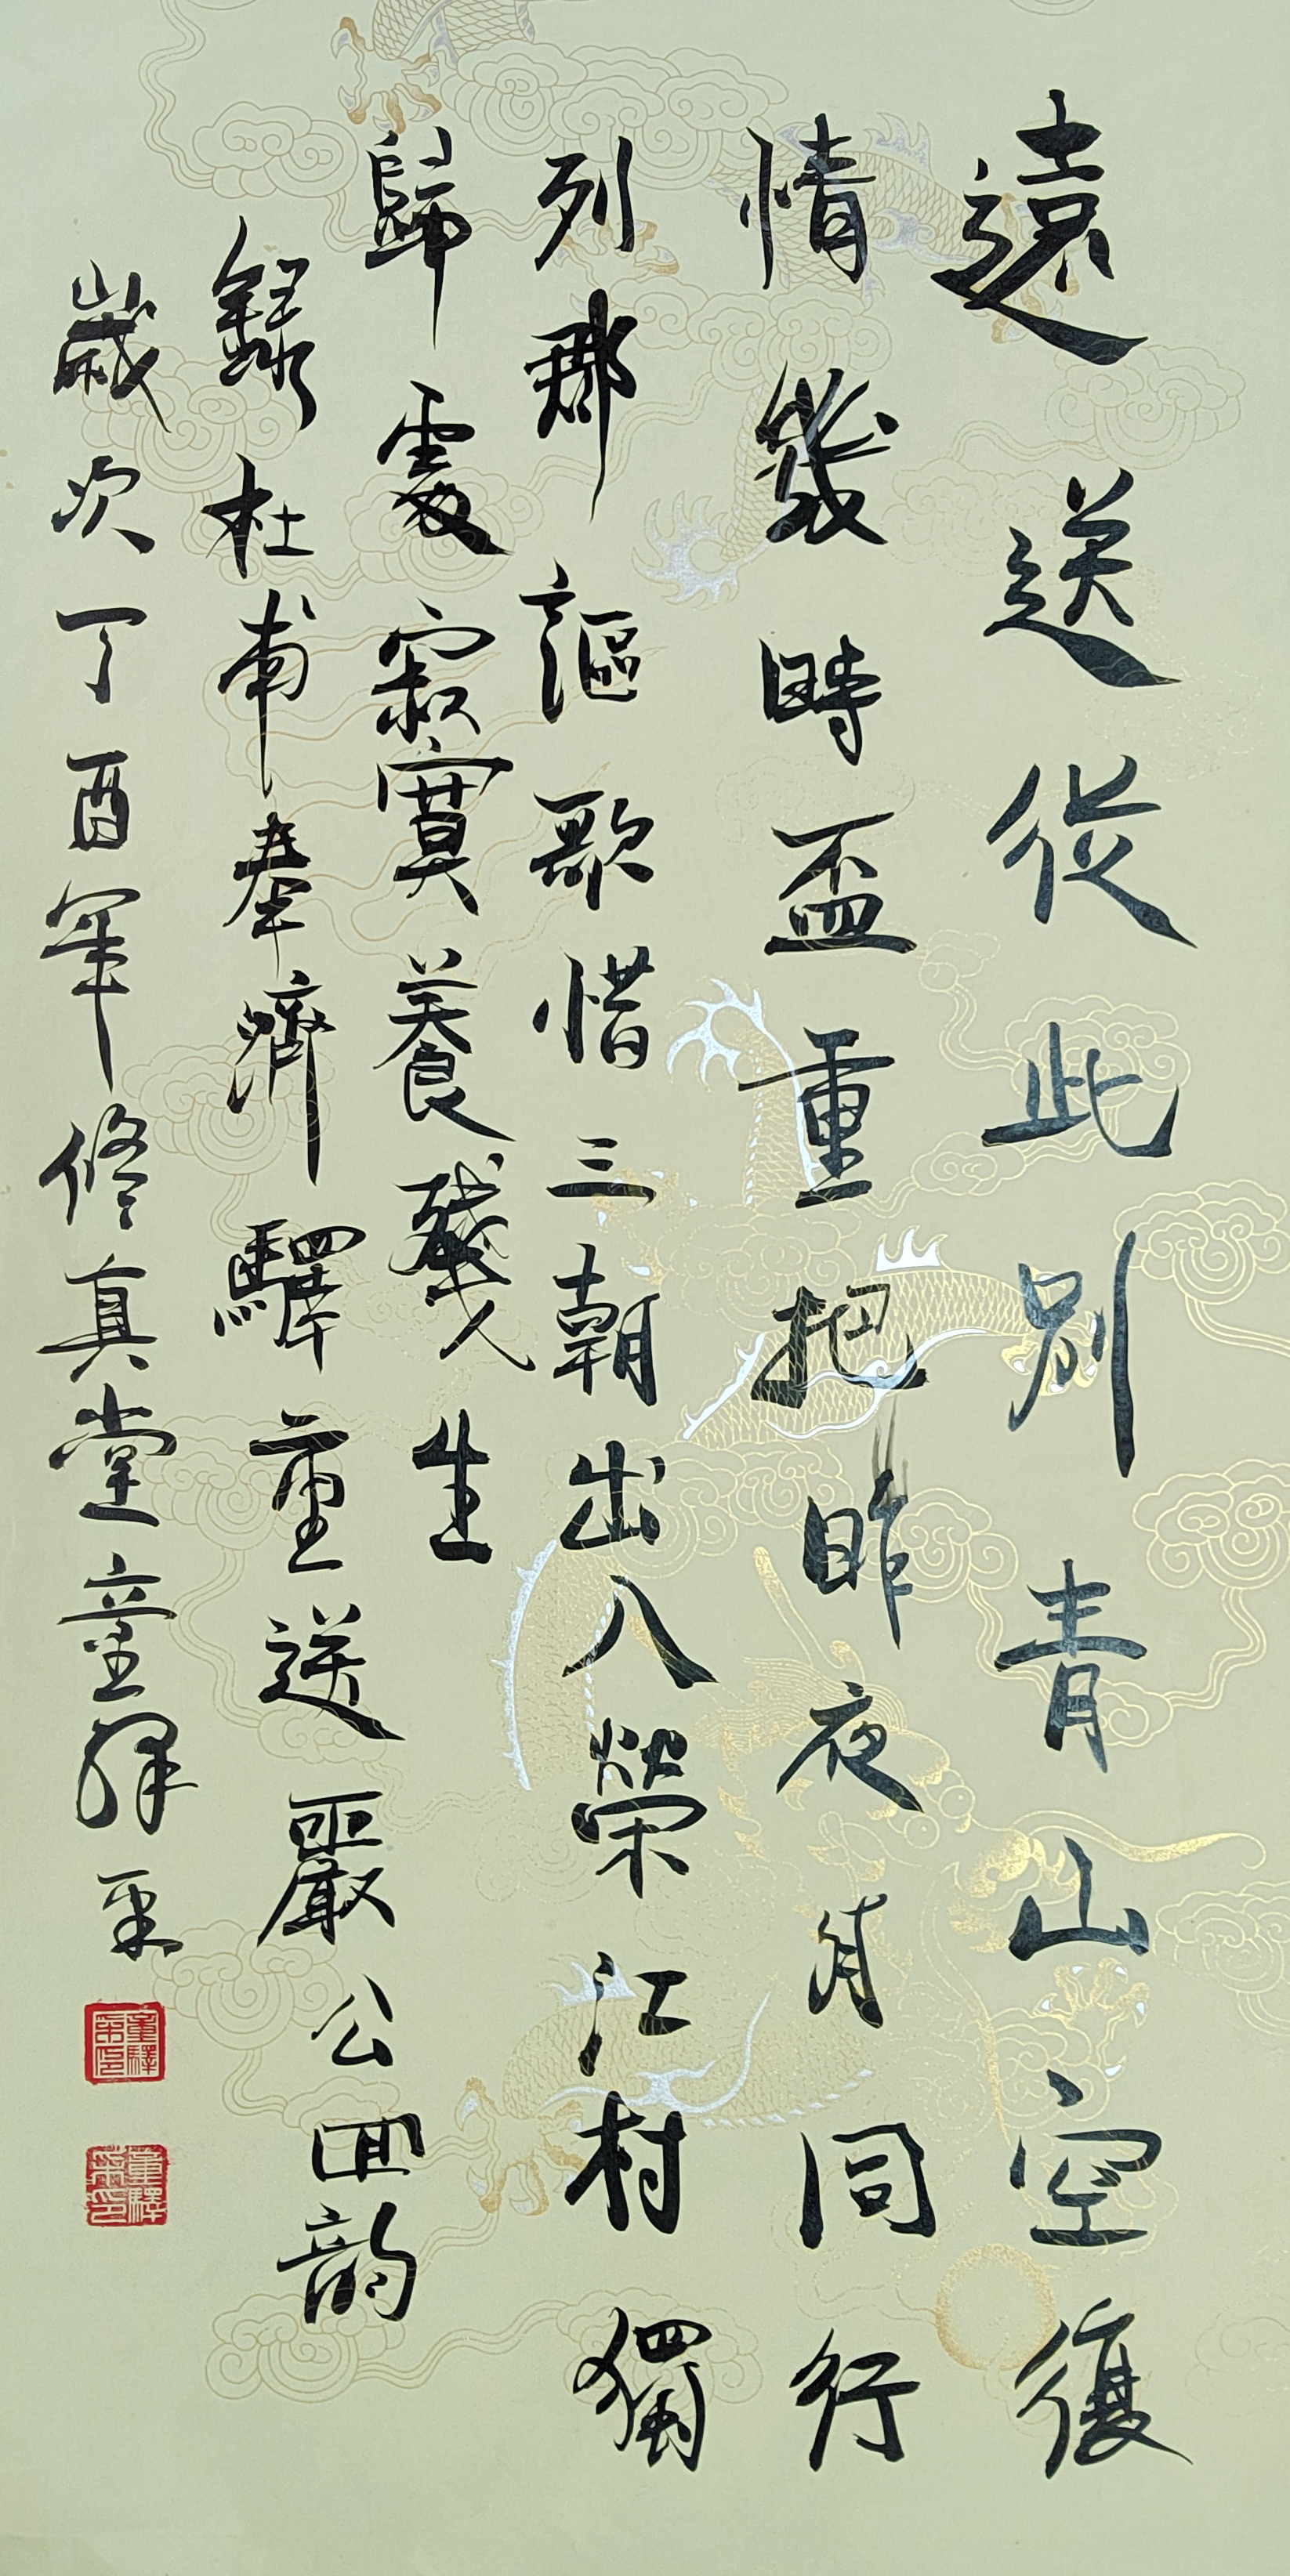 遠送從此别青山空復
情幾時盃重把昨夜月同行
列郡謳歌惜三朝出入榮江村獨
歸處寂寞養殘生
錄杜甫奉濟驛重送嚴公四韵
歲次丁酉年修真堂童驛采